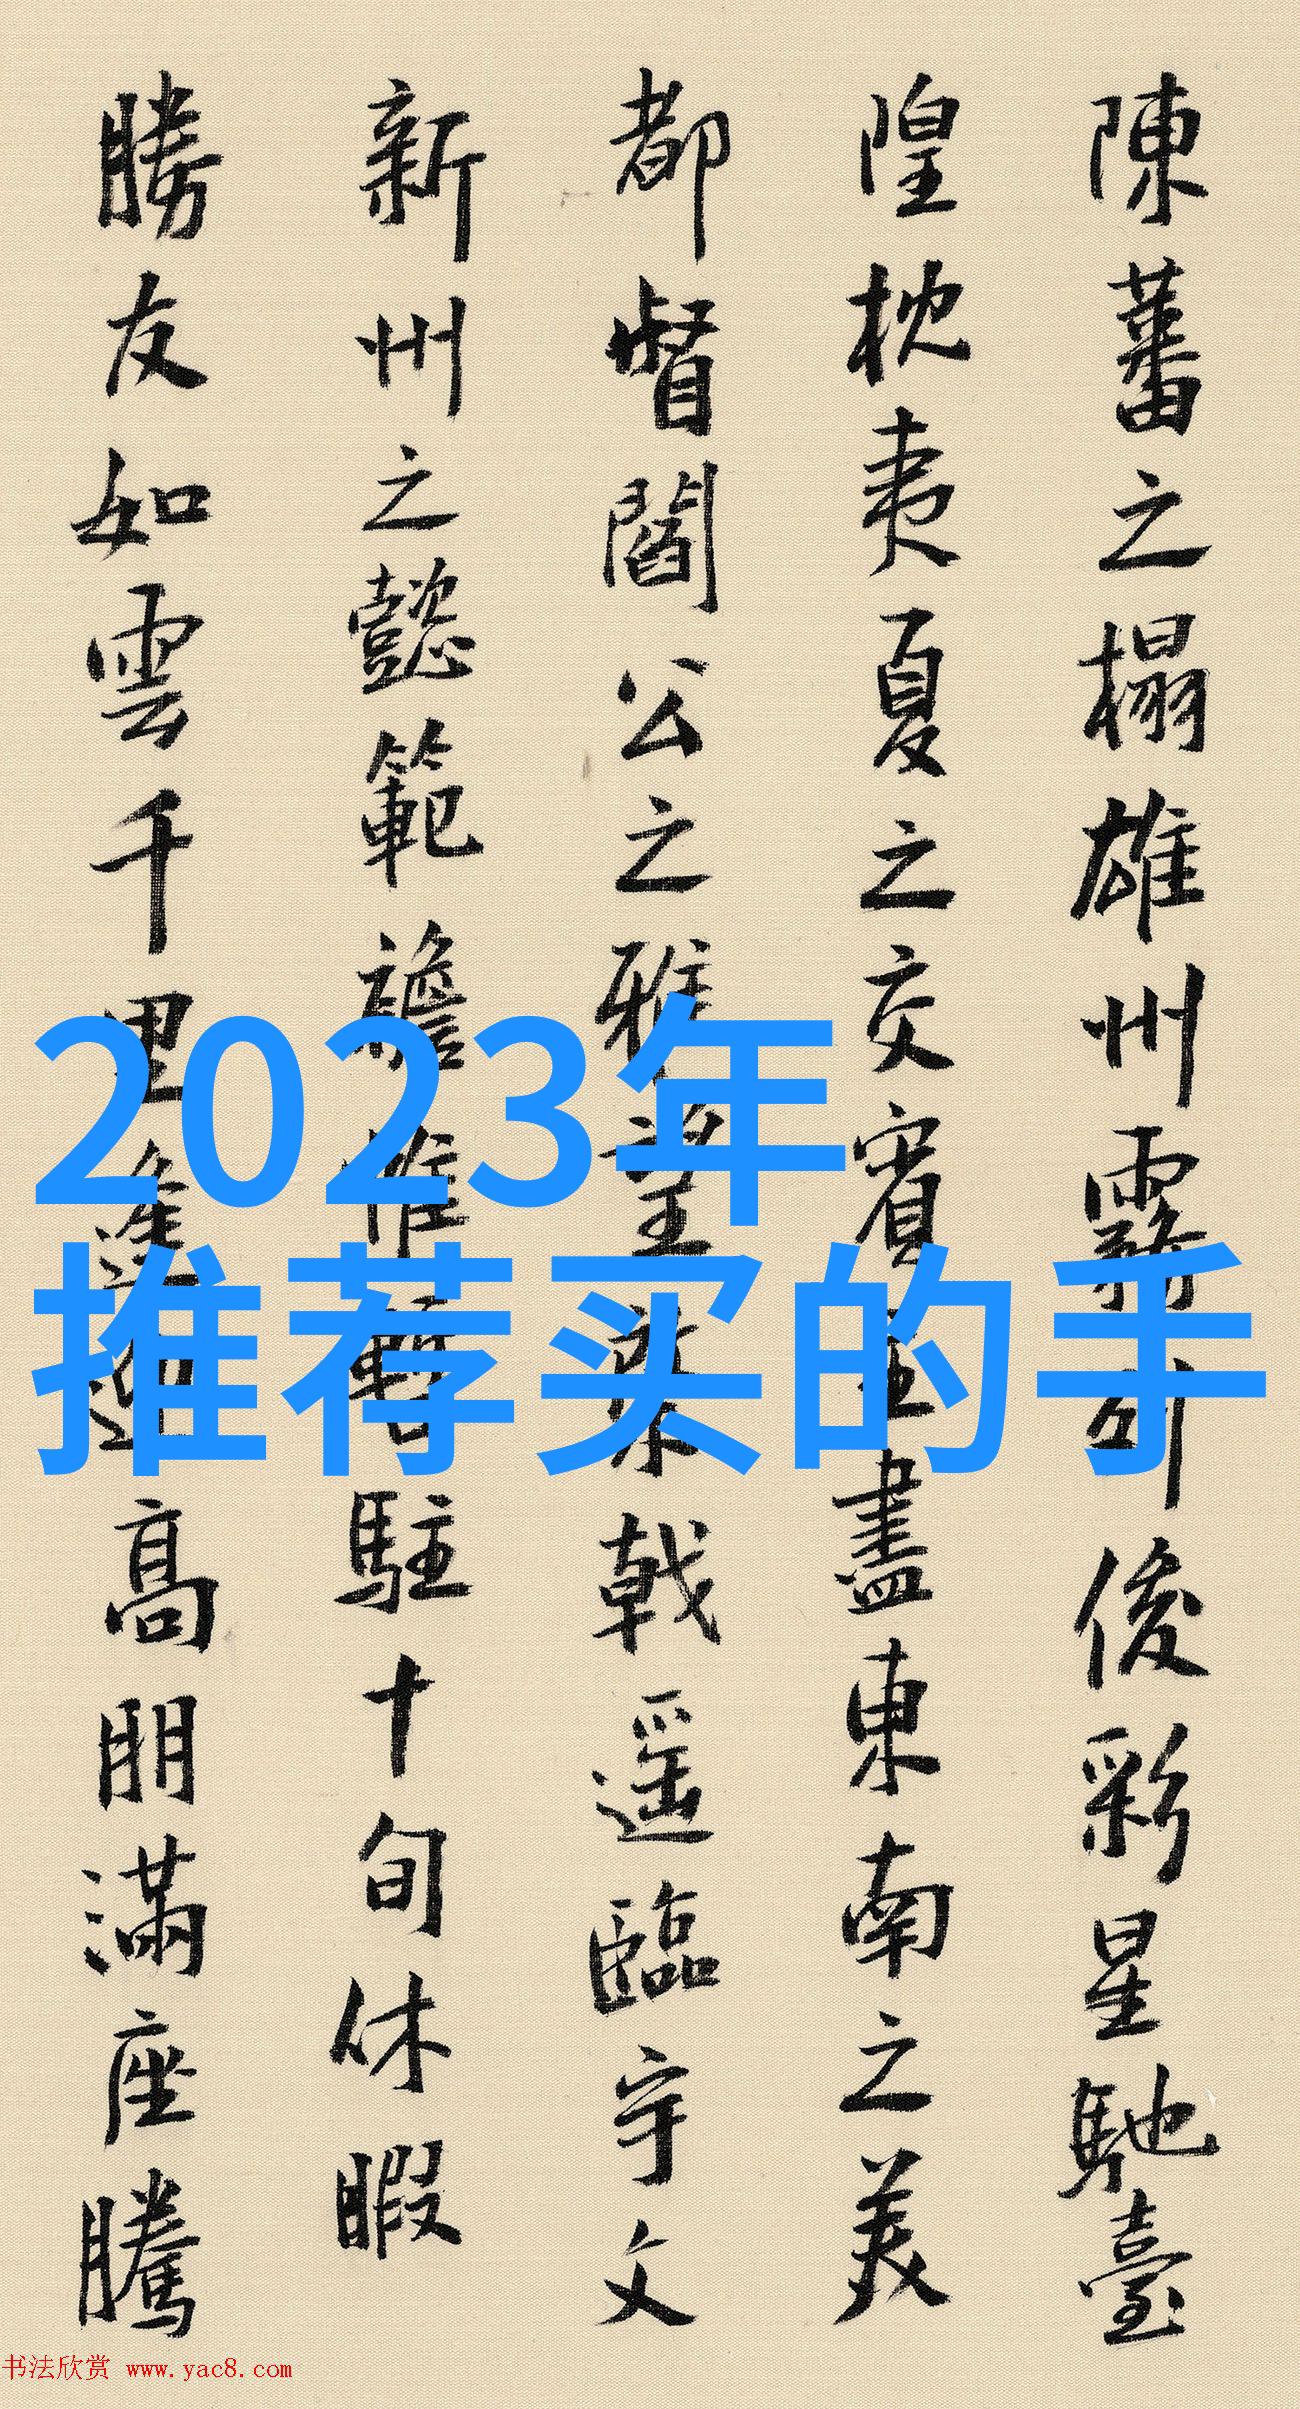 陳蕃之榻雄州霧列俊彩星馳臺
隍枕夷夏之交賓主盡東南之美
都督閻公之雅望棨戟遥臨宇文
新州之懿範襜惟暫駐十旬休暇
勝友如雲千里逢迎高朋滿座騰
2023年
推荐买的手
书法欣赏 www.yac8.com